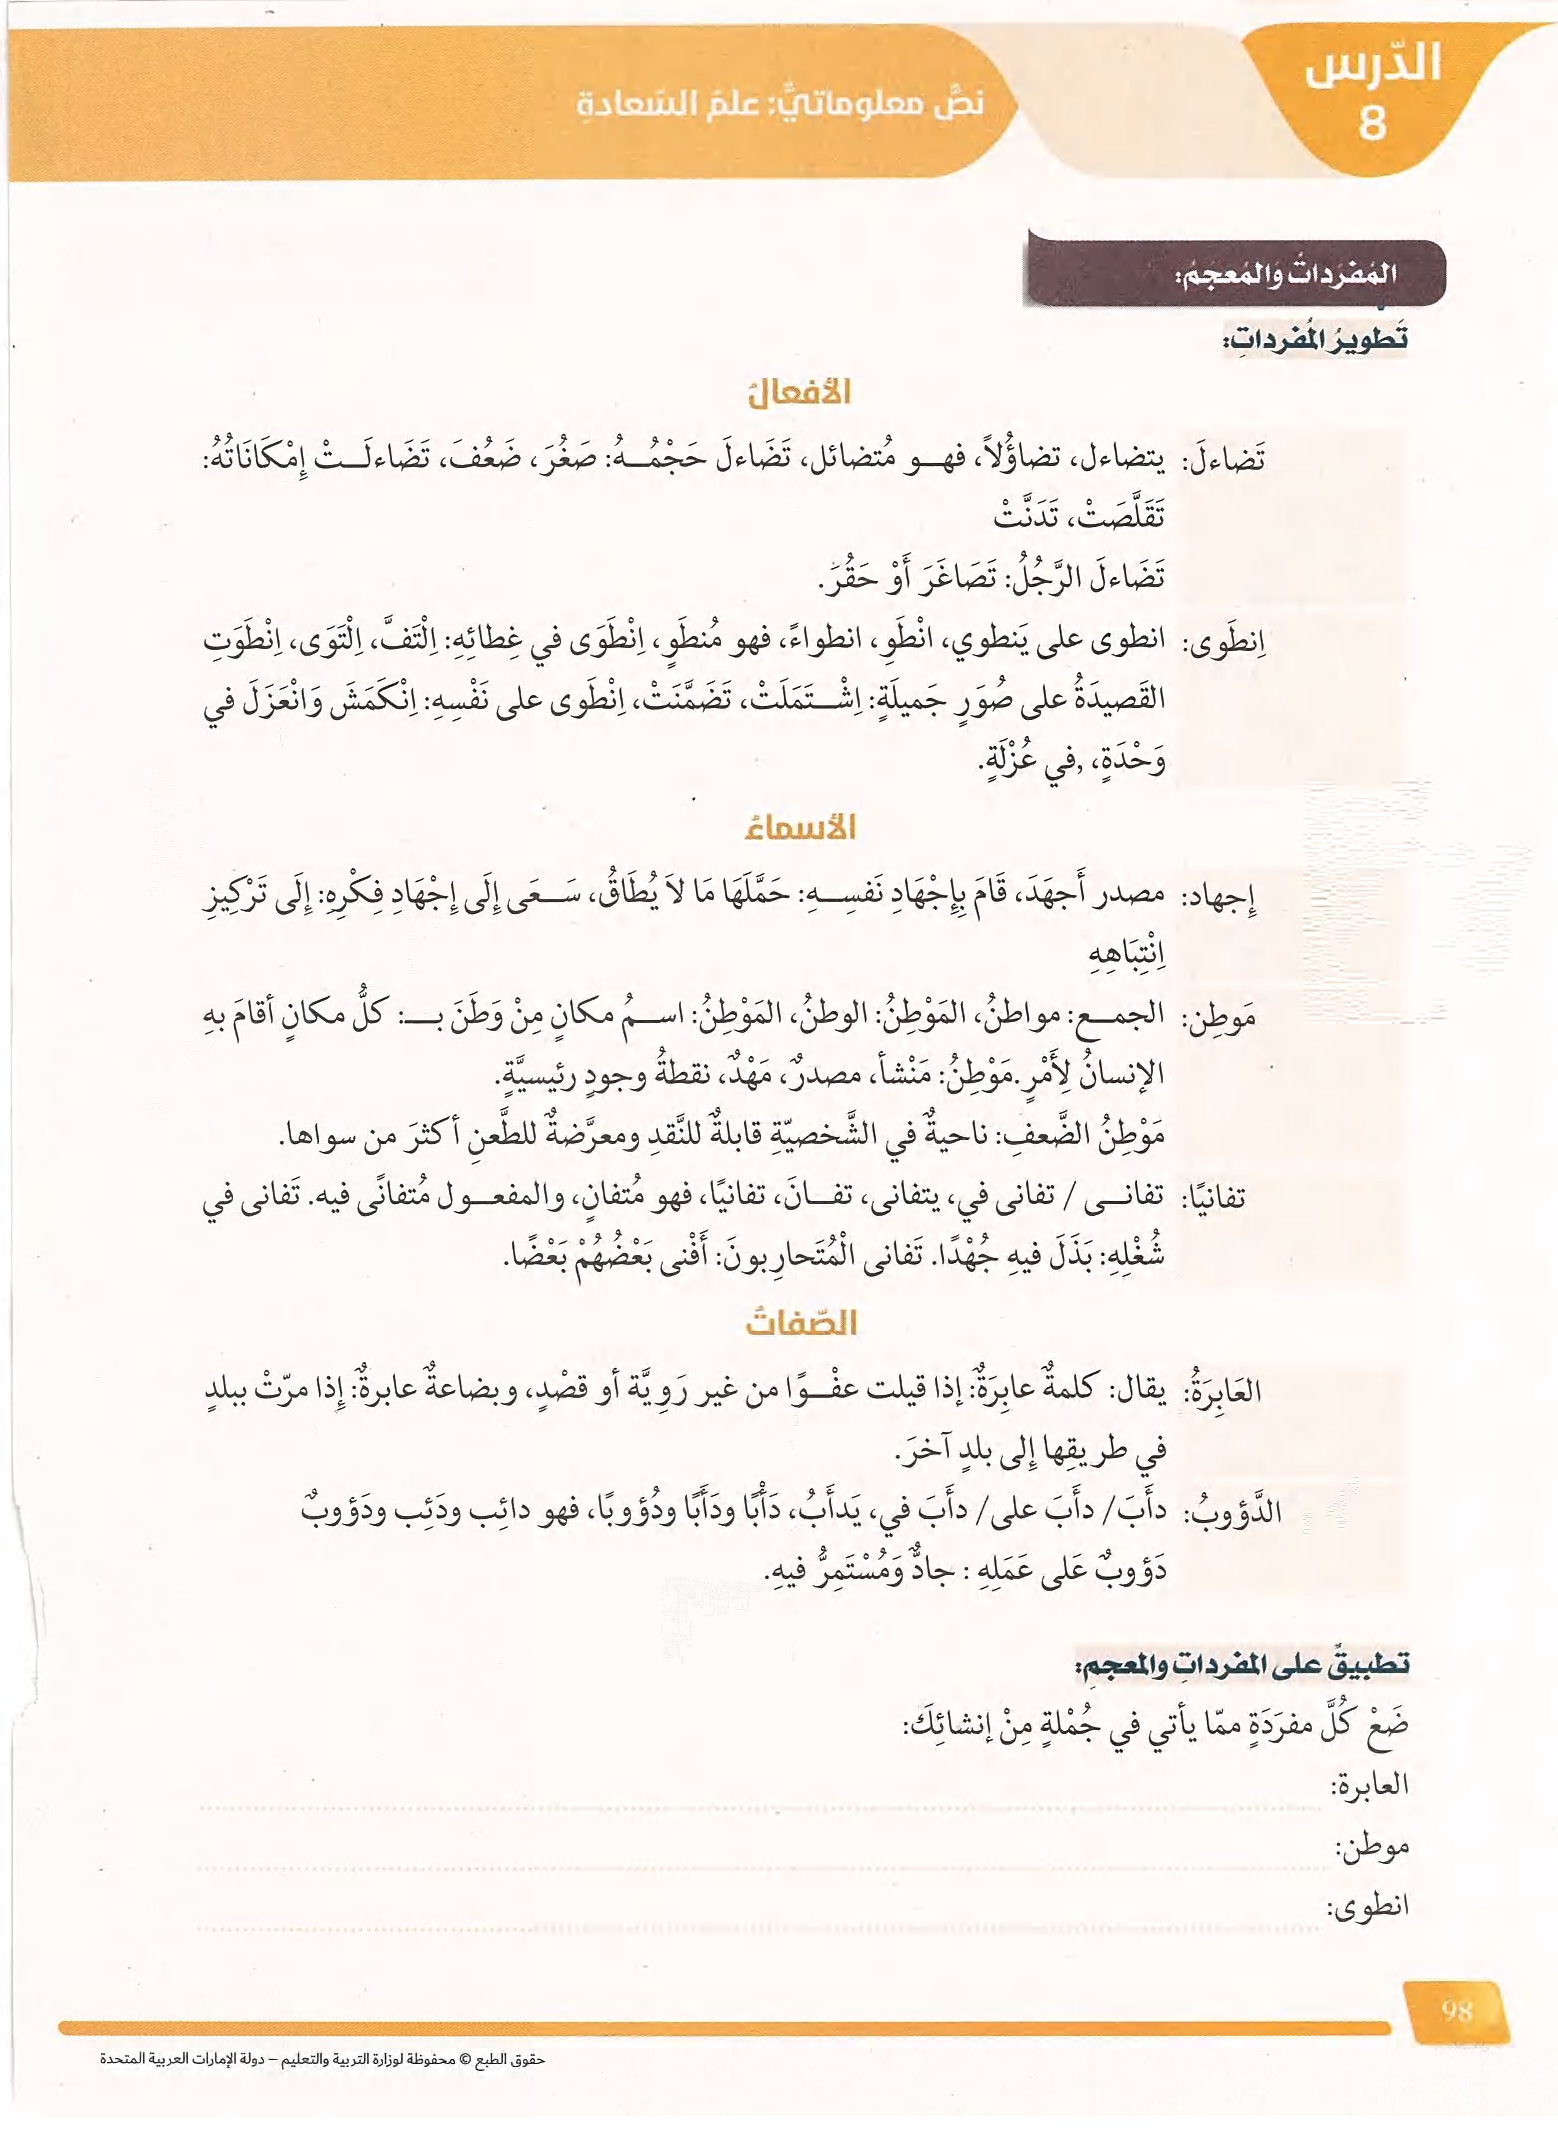 الدّرس
8
نصٌّ معلوماتيٌّ: علمُ السّعادةِ
المُفرَداتُ وَالمُعجَمُ:
تَطويرُ المُفرداتِ:
الأفعالُ
تَضاءلَ: يتضاءل، تضاؤُلاً، فهو مُتضائل، تَضَاءلَ حَجْمُهُ: صَغُرَ، ضَعُفَ، تَضَاءلَتْ إِمْكَانَاتُهُ:
تَقَلَّصَتْ، تَدَنَّتْ
تَضَاءلَ الرَّجُلُ: تَصَاغَرَ أَوْ حَقُرَ.
اِنطَوى: انطوى على يَنطوي، انْطَوِ، انطواءً، فهو مُنطَوٍ، اِنْطَوَى في غِطائِهِ: اِلْتَفَّ، اِلْتَوَى، اِنْطَوَتِ
القَصيدَةُ على صُوَرٍ جَميلَةٍ: اِشْتَمَلَتْ، تَضَمَّنَتْ، اِنْطَوى على نَفْسِهِ: اِنْكَمَشَ وَانْعَزَلَ في
وَحْدَةٍ، ,في عُزْلَةٍ.
الأسماءُ
إجهاد: مصدر أَجهَدَ، قَامَ بِإِجْهَادِ نَفسِهِ: حَمَّلَهَا مَا لاَ يُطَاقُ، سَعَى إِلَى إِجْهَادِ فِكْرِهِ: إِلَى تَرْكِيزِ
اِنْتِبَاهِهِ
مَوطِن: الجمع: مواطنُ، المَوْطِنُ: الوطنُ، المَوْطِنُ: اسمُ مكانٍ مِنْ وَطَنَ بـ: كلُّ مكانٍ أقامَ بهِ
الإنسانُ لِأَمْرٍ.مَوْطِنُ: مَنْشأ، مصدرٌ، مَهْدٌ، نقطةُ وجودٍ رئيسيَّةٍ.
مَوْطِنُ الضَّعفِ: ناحيةٌ في الشَّخصيّةِ قابلةٌ للنَّقدِ ومعرَّضةٌ للطَّعنِ أكثرَ من سواها.
تفانيًا: تفانى / تفانى في، يتفانى، تفانَ، تفانيًا، فهو مُتفانٍ، والمفعول مُتفانًى فيه. تَفانى في
شُغْلِهِ: بَذَلَ فيهِ جُهْدًا. تَفانى الْمُتَحارِبونَ: أَفْنى بَعْضُهُمْ بَعْضًا.
الصّفاتُ
العَابِرَةُ: يقال: كلمةٌ عابِرَةٌ: إذا قيلت عفْوًا من غير رَوِيَّة أو قصْدٍ، وبضاعةٌ عابرةٌ: إِذا مرّتْ ببلدٍ
في طريقِها إِلى بلدٍ آخرَ.
الدَّؤوبُ: دأَبَ/ دأَبَ على/ دأَبَ في، يَدأَبُ، دَأْبًا ودَأَبًا ودُؤوبًا، فهو دائِب ودَئِب ودَؤوبٌ
دَؤوبٌ عَلى عَمَلِهِ : جادٌّ وَمُسْتَمِرٌّ فيهِ.
تطبيقٌ على المفرداتِ والمعجمِ:
ضَعْ كُلَّ مفرَدَةٍ ممّا يأتي في جُمْلةٍ مِنْ إنشائِكَ:
العابرة:
موطن:
انطوى:
98
حقوق الطبع © محفوظة لوزارة التربية والتعليم – دولة الإمارات العربية المتحدة